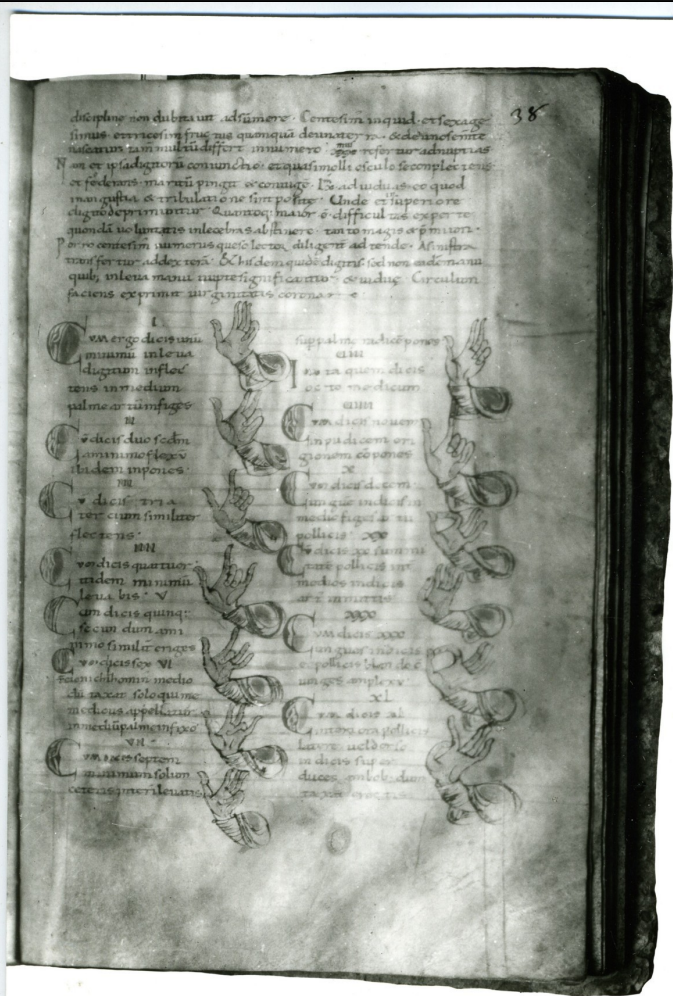 discipline non dubitavit adsumere. Centesim inquid et sexage
simus et tricesim fructus quanquā de una terra & de uno semente
nascatur tam multū differt in numero. xxx refertur ad nuptias
Nam et ipsa digitorū coniunctio et quasi molli osculo se conplectens
et foederans maritū pingit & coniugē. LX ad viduas eo quod
in angustia & tribulatione sint posite. Unde et superiore
digito deprimuntur Quantoq; maior ē difficultas experte
quondā voluntatis inlecebris abstinere tanto magis & pmium.
Porro centesim numerus queso lector diligent adtende. A sinistra
transfertur ad dexterā. & hisdem quidē digitis sed non eadē manu
quib; in leva manu nupte significantur & vidue Circulum
faciens exprimit virginitatis coronam
38
I
Cum ergo dicis unū
minimū in leva
digitum inflec
tens in medium
palme artū infiges
II
Cū dicis duo secdm
a minimo flexū
ibidem inpones.
III
Cū dicis tria
tercium similiter
flectens.
IIII
Cum dicis quattuor
itidem minimū
levabis. V
Cum dicis quinq;
secundum a mi
nimo similit eriges
Cum dicis sex VI
medio
dūtaxat solo qui me
medicus appellatur
in mediū palme infixo
VII
Cum dicis septem
minimum solum
ceteris interi levatis
sup palme radicē pones
VIII
Iuxta quem dicis
octo medicum
VIIII
Cum dicis novem
inpudicem eri
gionem cōpones
X
Cum dicis decem
ungue indicis in
medio figes artu
pollicis. XX
Cū dicis xx summi
tate pollicis int
medios indicis
artū inmittis
XXX
Cum dicis xxx
ungues indicis
& pollicis blando c
unges amplexu
XL
Cum dicis xl
interiora pollicis
lateri vel dorso
indicis sup
duces ambob; dum
taxat erectis